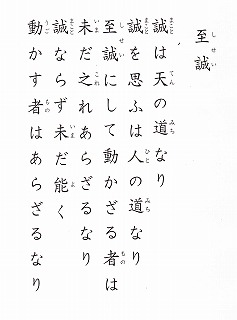 至誠
誠は天の道なり
誠を思ふは人の道なり
至誠にして動かざる者は
未だ之れあらざるなり
誠ならず未だ能く
動かす者はあらざるなり